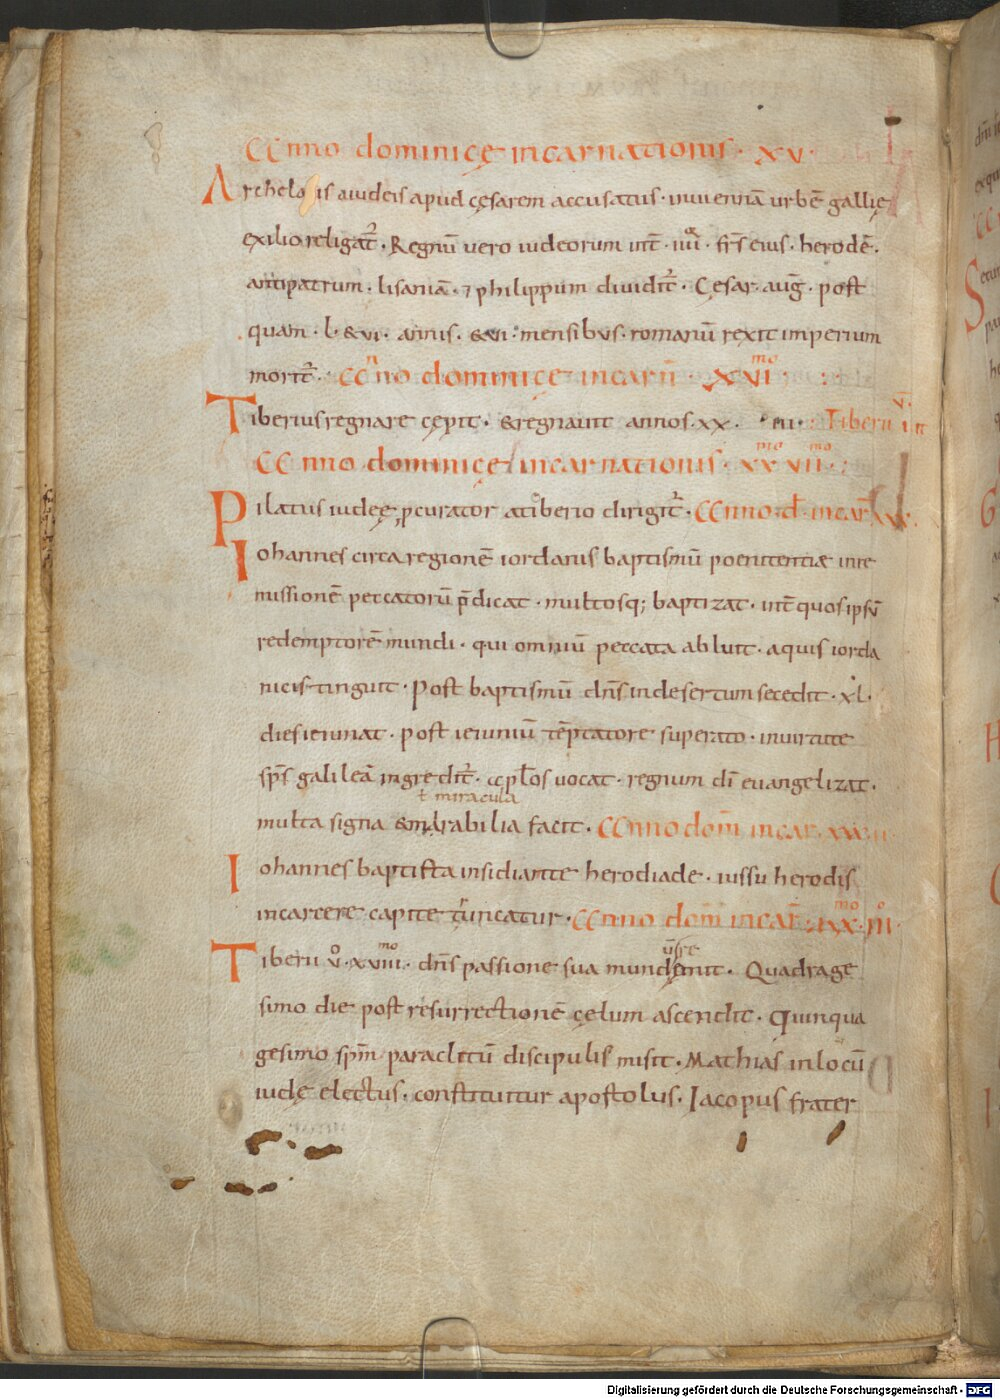 Anno dominicę incarnationis · xv ·
Archelaus a iudeis apud cęsarem accusatus · in uiennā urbē gallię
exilio religat̄ · Regnū uero iudeorum int̄ · iiii · fr̄s eius · herodē ·
antipatrum · lisaniā · ⁊ philippum diuidit̄ · Cęsar auḡ · post
quam · l · & vi · annis · & vi · mensibus · romanū rexit imperium
morit̄ · Anno dominicę incarn̄ · xvi mo ·
Tiberius regnare cępit · & regnauit annos · xx · iii · Tiberii
Anno dominicę incarnationis · xx mo vii mo ·
Pilatus iudeę ꝓcurator a tiberio dirigit̄ · Anno · d · incar̄ xxx
Iohannes circa regionē iordanis baptismū poenitentiæ in re
missionē peccatorū p̄dicat · multosq; baptizat · int̄ quos ipsū
redemptorē mundi · qui omniū peccata abluit · aquis iorda
nicis tinguit · Post baptismū dn̄s in desertum secedit · xl ·
dies ieiunat · post ieiuniū tēptatore superato · in uirtute
sp̄s galileā ingredit̄ · apl̄os uocat · regnum dī euangelizat ·
ł miracula
multa signa & mirabilia facit · Anno dom̄ incar · xxx
Iohannes baptista insidiante herodiade · iussu herodis
in carcere capite truncatur · Anno dom̄ incar̄ · xxx mo · iii o ·
Tiberii v̊ · xviii mo · dn̄s passione sua mundū redemit · Quadrage
simo die post resurrectionē cęlum ascendit · Quinqua
gesimo sp̄m paracletū discipulis misit · Mathias in locū
iudę electus · constituitur apostolus · Iacopus frater
Digitalisierung gefördert durch die Deutsche Forschungsgemeinschaft - DFG